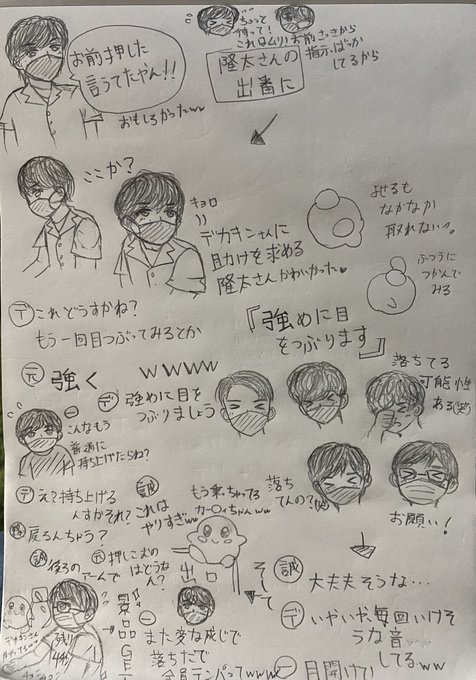 お前押した
言うてたやん!!
おもしろかったww
ちょっと
待って!
これはムリ!
お前さっきから
指示ばっか
してるから
隆太さんの
出番に
ここか?
キョロ
デカキンさんに
助けを求める
隆太さんかわいかった
よせるも
なかなか
取れないっ。
ふつうに
つかんで
みる
デ これどうすかね?
もう一回目つぶってみるとか
『強めに目
をつぶります』
元 強く
wwww
デ 強めに目を
つぶりましょう
落ちてる
可能性
ある(笑)
一 こんなもう
普通に
持ち上げたらね?
デ え?持ち上げる
んすかそれ?
誠 これは
やりすぎww
もう乗っちゃってる
カービィちゃんww
落ち
てんの?(笑)
お願い!
戻るんちゃう?
誠 後ろの
アームで
元 押しこむの
はどうな
ん?
出口
そ〜
誠 大丈夫そうな…
デ いやいや、毎回いけそ
うな音
してるww
目開けてい
残り
4秒
景品GET
一 また変な感じで
落ちたで
全員テンパってwww